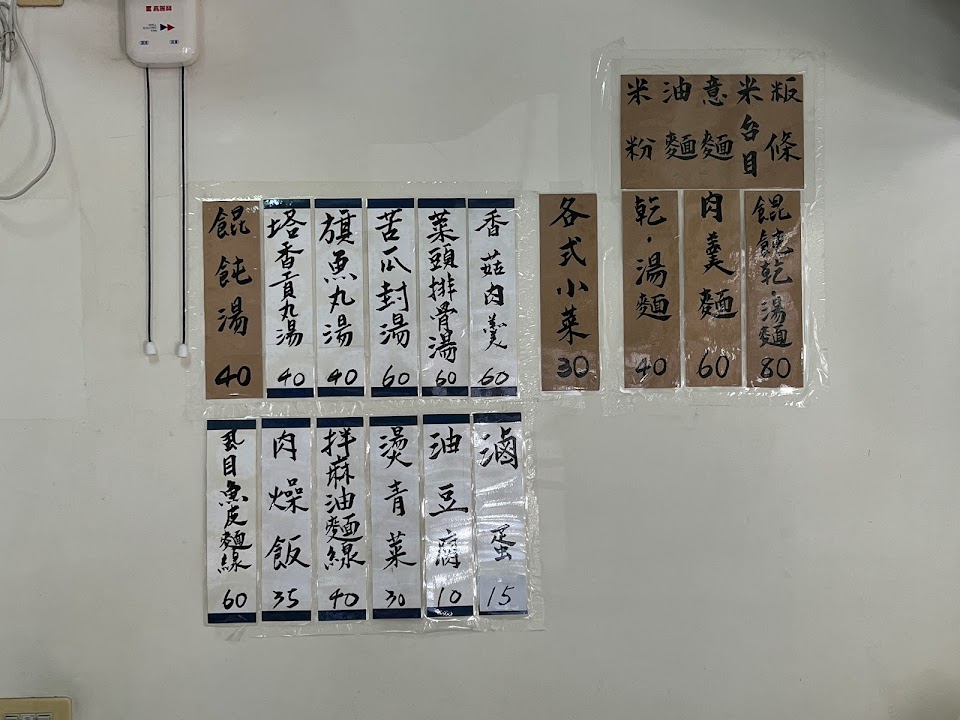 粄條
米台目
意麵
油麵
米粉
餛飩乾.湯麵
80
肉羹麵
60
乾.湯麵
40
各式小菜
30
香菇肉羹
60
菜頭排骨湯
60
苦瓜封湯
60
旗魚丸湯
40
塔香貢丸湯
40
餛飩湯
40
滷蛋
15
油豆腐
10
燙青菜
30
拌麻油麵線
40
肉燥飯
35
虱目魚皮麵線
60